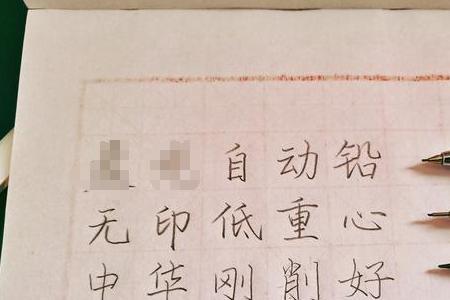 自动铅
无印低重心
中华刚削好